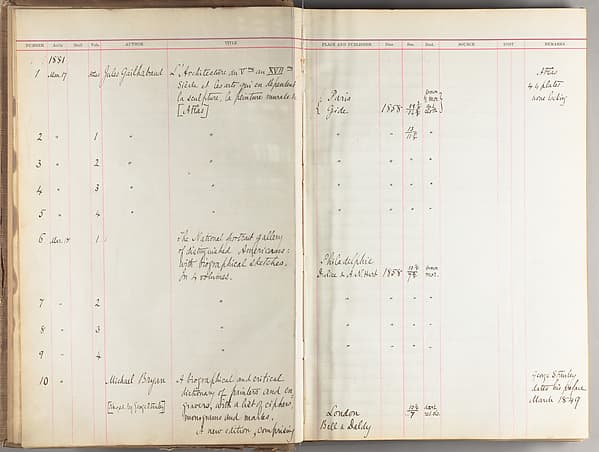 NUMBER Date Shelf Vols. AUTHOR TITLE PLACE AND PUBLISHER Date Size Bind. SOURCE COST REMARKS
1881
1 Mar. 17 Atlas Jules Gailhabaud L'Architecture du Vme au XVIIme
Siècle et les arts qui en dépendent
la sculpture, la peinture murale &
[Atlas]
Paris
Gide 1858
Atlas
44 plates
none lacking
2 " 1 " " " "
3 " 2 " " " " "
4 " 3 " " " " "
5 " 4 " " " " "
6 Mar. 1 The National portrait gallery
of distinguished Americans:
with biographical sketches.
In 4 volumes.
Philadelphia
& A. N. Hart 1858 brown mor.
7 " 2 " " " " "
8 " 3 " " " " "
9 " 4 " " " " "
10 " Michael Bryan A biographical and critical
dictionary of painters and en-
gravers, with a list of ciphers,
monograms and marks.
A new edition, comprising
[Enlarged by George Stanley]
London
Bell & Daldy
George Stanley
dates his preface
March 1849